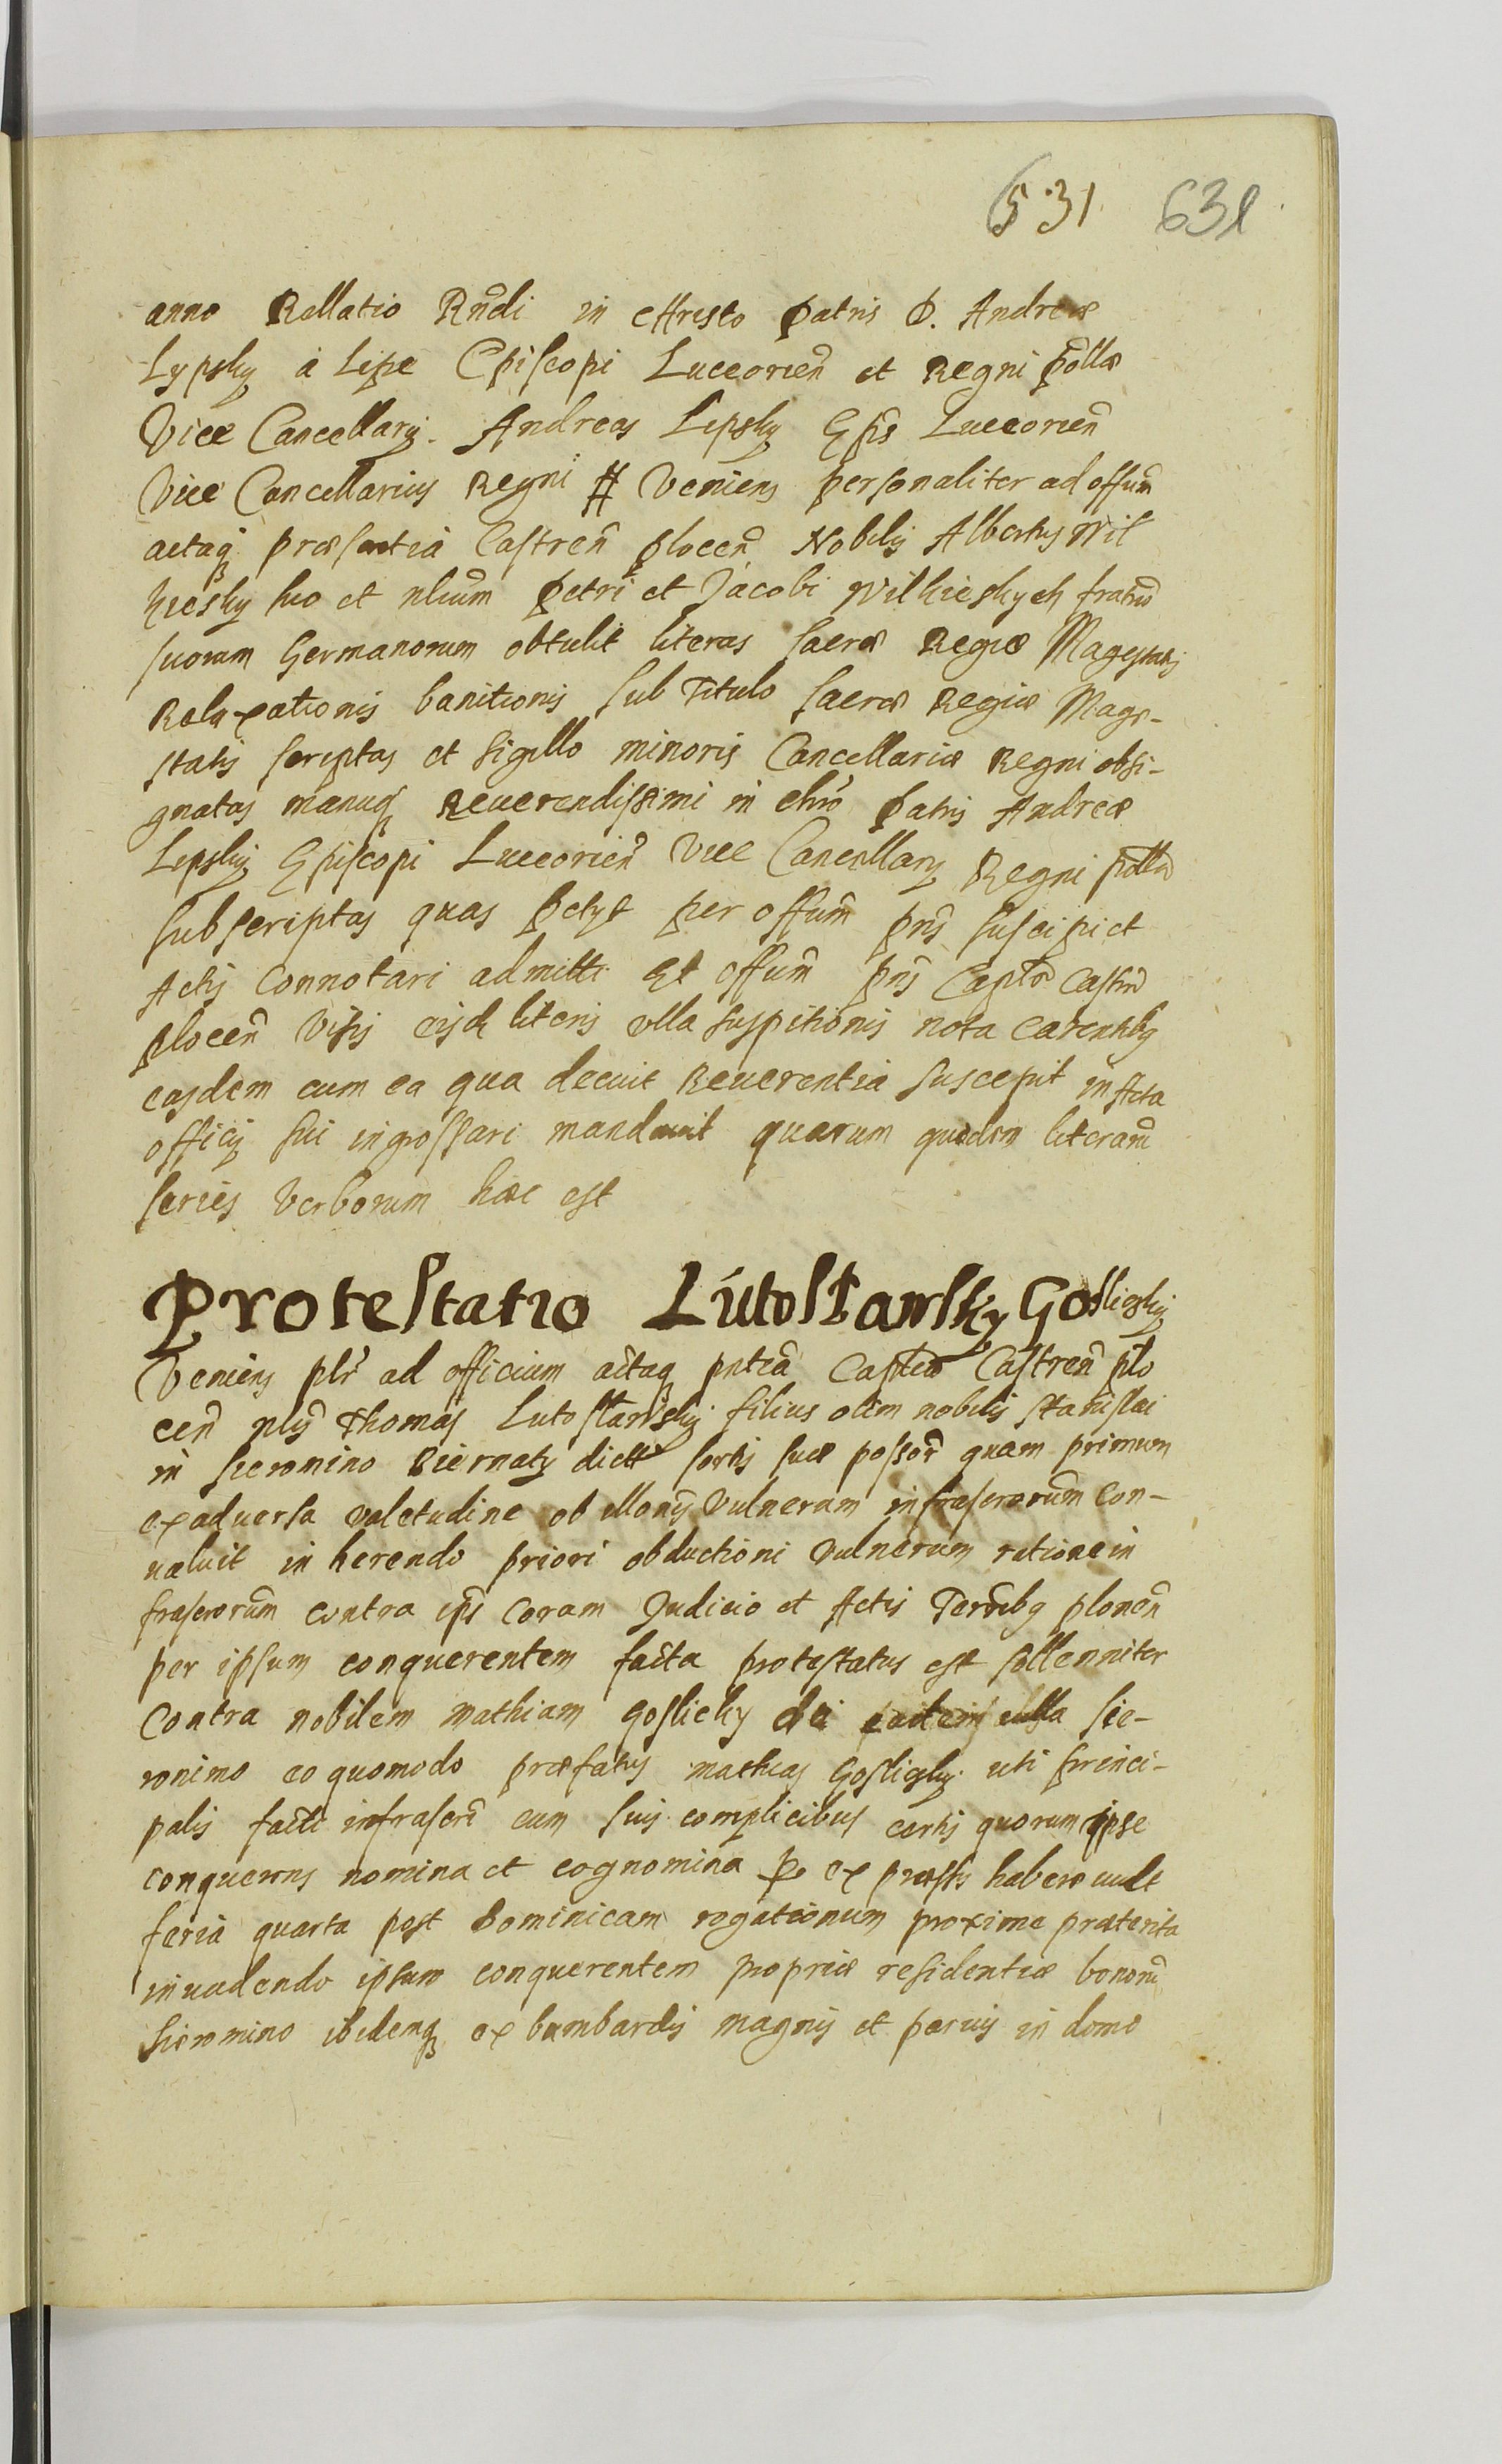 631 631
anno Rellatio Rndi in Christo patris D. Andreæ
Lypsky á Lipe Episcopi Luceorien et Regni pollæ
Vice Cancellarij. Andreas Lipsky Eps Luceorien
Vice Cancellarius Regni # Veniens personaliter ad offum
actaq præsentia Castren plocen Nobilis Albertus Wil
kiesky suo et nlium Petri et Jacobi Wilkieskych fratru
suorum Germanorum obtulit literas Sacræ Regiæ Magestatis
Relaxationis banitionis sub Titulo Sacræ Regiæ Mage-
statis scriptas et sigillo minoris Cancellariæ Regni obsi-
gnatas manuq Reuerendissimi in chro patris Andreæ
Lipskij Episcopi Luceorien Vice Cancellarij Regni pollæ
subscriptas quas petyt per offum pns suscipi et
Actis connotari admitti Et offum pns Captle Castrn
plocen Visis eisd literis ulla suspitionis nota carentibq
easdem cum ea qua decuit Reuerentia suscepit in Acta
officij sui ingrossari mandauit quarum quidem literaru
series Verborum hæc est
Protestatio Lutostawsky Gosliesky
Veniens plr ad officium actaq pntia Captea Castren plo
cen nlis Thomas Lutostawskij filius olim nobilis Stanislai
in Sieromino Biernaty dictæ sortis suæ possor quam primum
ex aduersa valetudine ob illonis Vulnerum infrascrorum con-
ualuit in herendo priori obductioni Vulnerum ratione in
frascrorum contra ips coram Judicio et Actis Terribq plonen
per ipsum conquerentem facta protestatus est sollenniter
contra nobilem Mathiam Goslicky de eadem villa Sie-
ronimo eo quomodo præfatus mathias Gosligky uti princi-
palis facti infrascri cum suis complicibus certis quorum ipse
conquerens nomina et cognomina p ex præssis habere uult
feria quarta post Dominicam rogationum proxime præterita
inuadendo ipsum conquerentem propriæ residentiæ bonoru
Sieromino ibidemq ex bombardis magnis et paruis in domo